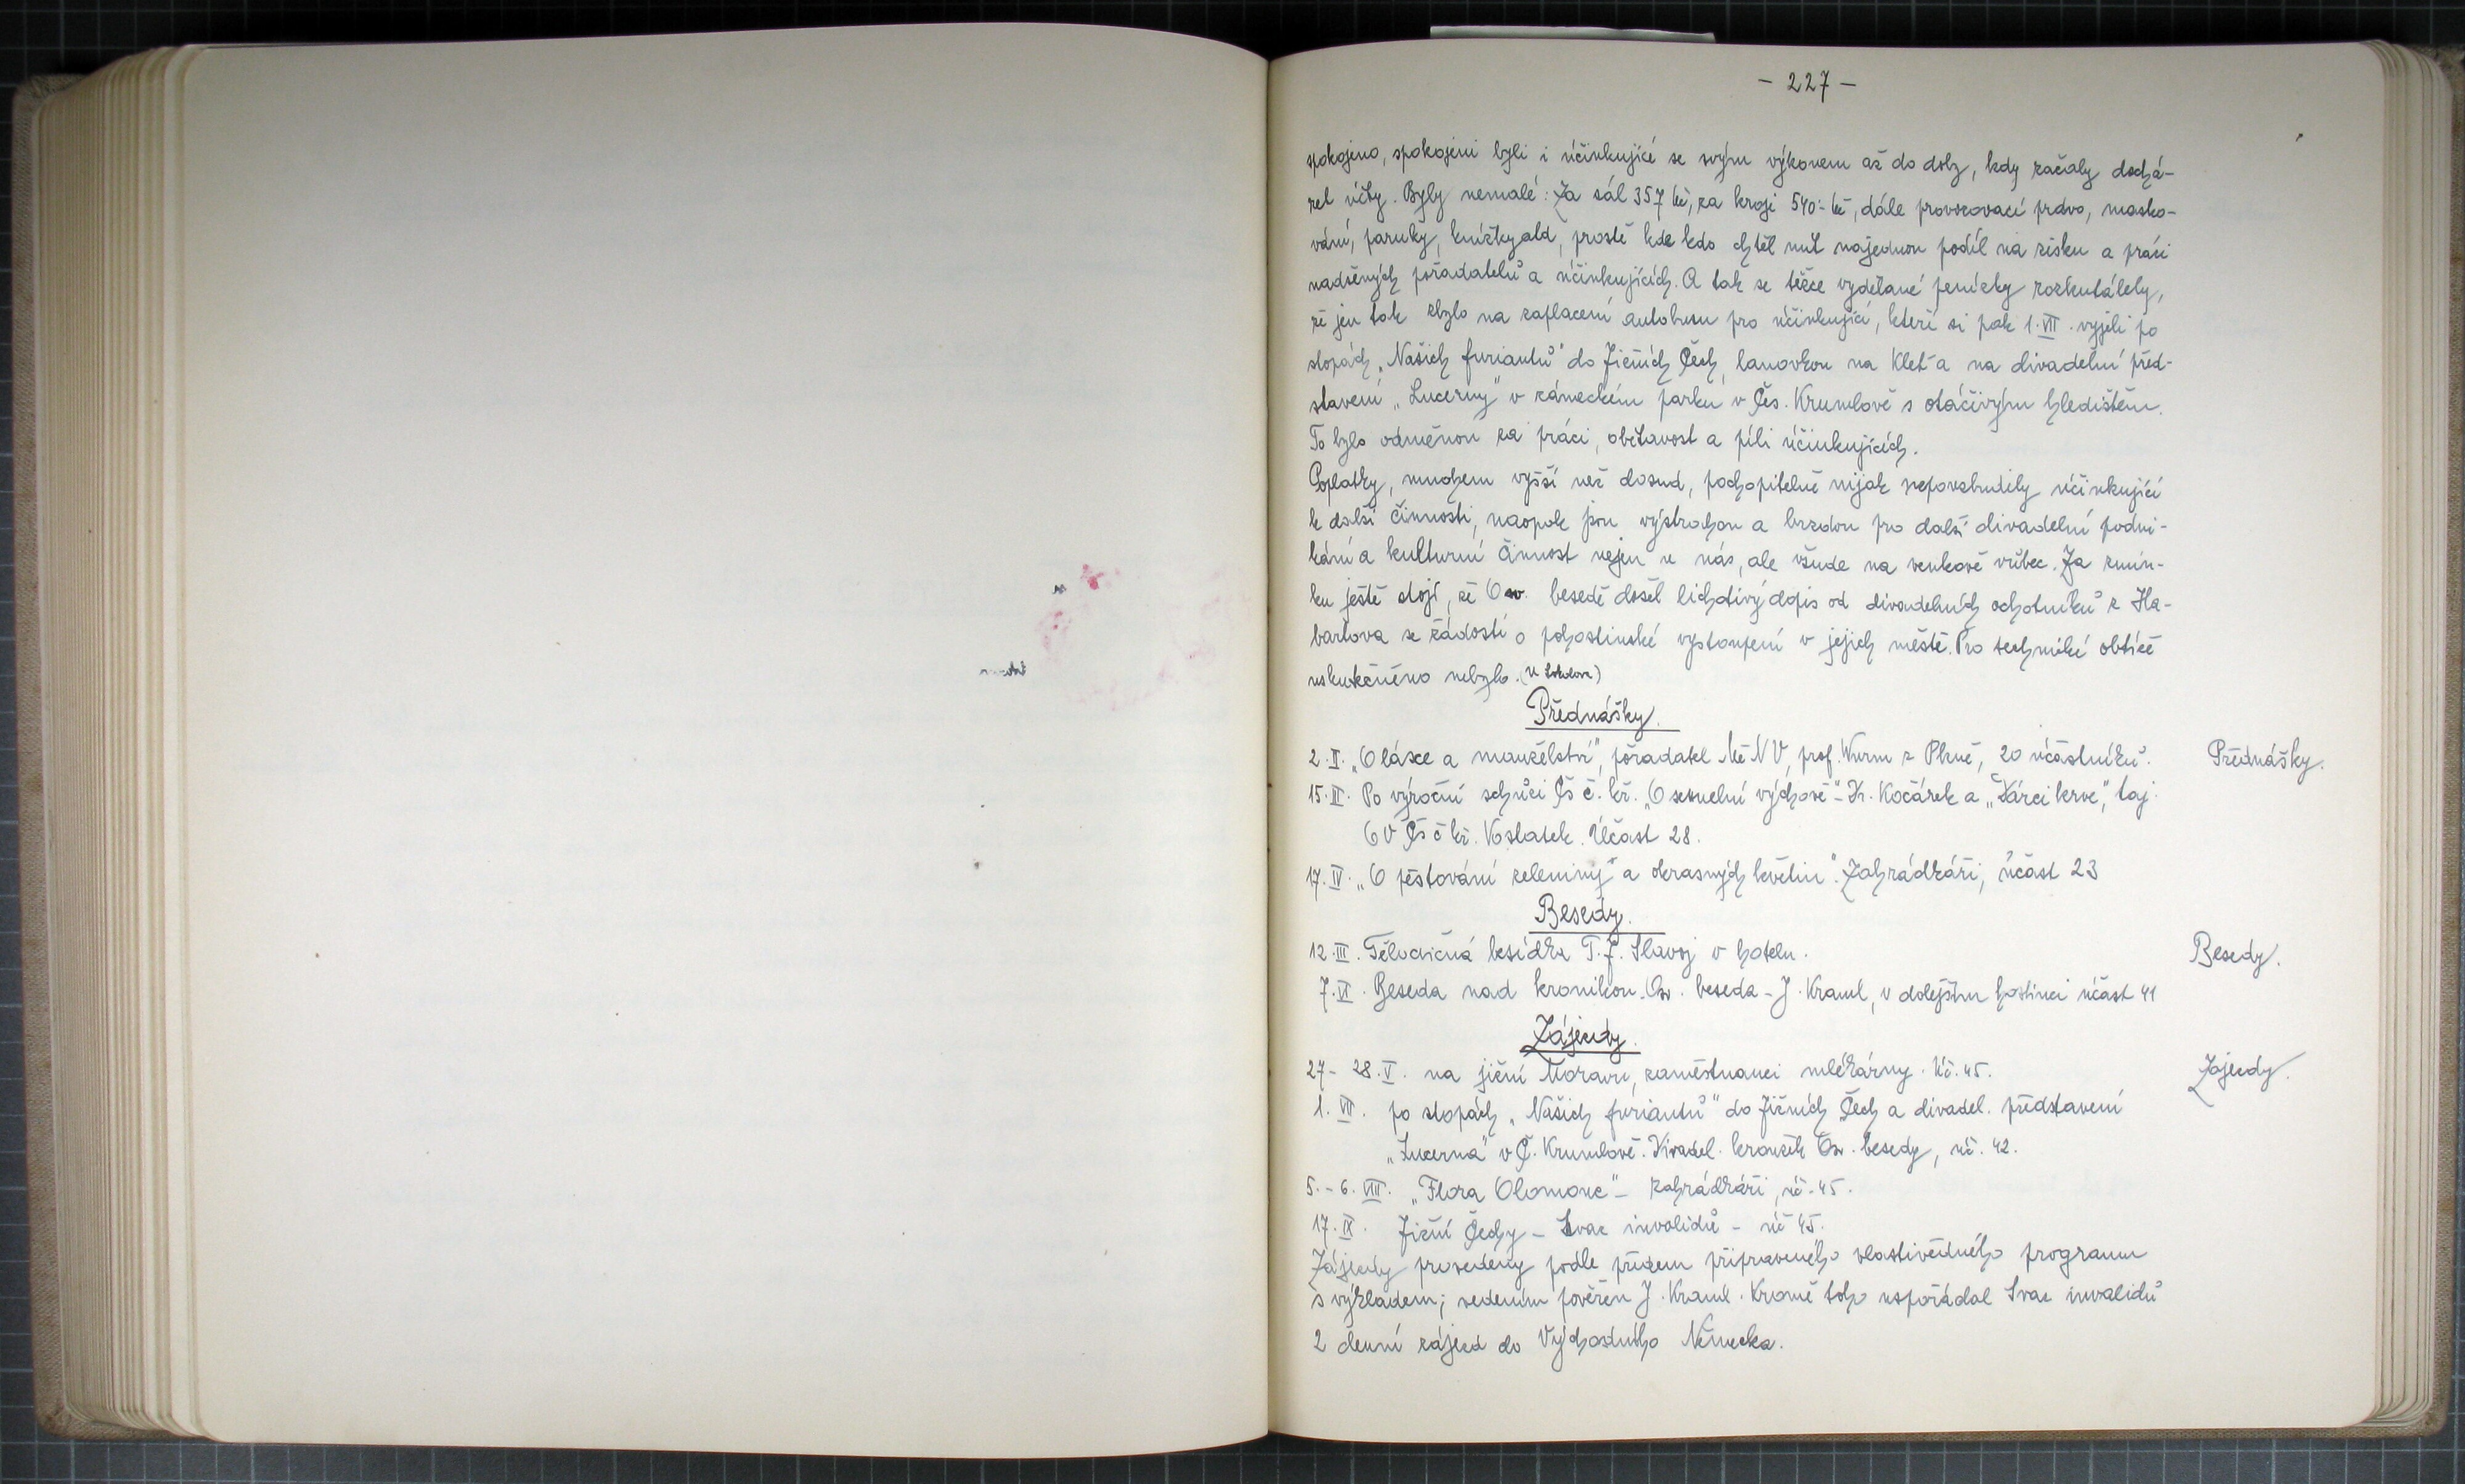 - 227 -
spokojeno, spokojeni byli i účinkující se svým výkonem až do doby, kdy začaly dochá-
zet účty. Byly nemalé: Za sál 357 Kč, za kroje 540.- Kč, dále provozovací právo, masko-
vání, paruky, knížky atd, prostě kde kdo chtěl mít najednou podíl na zisku a práci
nadšených pořadatelů a účinkujících. A tak se těžce vydělané penízky rozkutálely,
že jen tak zbylo na zaplacení autobusu pro účinkující, kteří si pak 1. VII. vyjeli po
stopách „Našich furiantů" do Jižních Čech, lanovkou na Kleť a na divadelní před-
stavení „Lucerny" v zámeckém parku v Čes. Krumlově s otáčivým hledištěm.
To bylo odměnou za práci, obětavost a píli účinkujících.
Poplatky, mnohem vyšší než dosud, pochopitelně nijak nepovzbudily účinkující
k další činnosti, naopak jsou výstrahou a brzdou pro další divadelní podni-
kání a kulturní činnost nejen u nás, ale všude na venkově vůbec. Za zmín-
ku ještě stojí, že Osv. besedě došel lichotivý dopis od divadelních ochotníků z Ha-
bartova se žádostí o pohostinské vystoupení v jejich městě. Pro technické obtíže
uskutečněno nebylo. (u Sokolova)
Přednášky.
2. II. „O lásce a manželství", pořadatel MěNV, prof. Wurm z Plzně, 20 účastníků. Přednášky.
15. II. Po výroční schůzi Čs č. kř. „O sexuelní výchově" - Dr. Kočárek a „Dárci krve", taj.
OV Čs č kř. Vostatek. Účast 28.
17. IV. „O pěstování zeleniny a okrasných květin". Zahrádkáři, účast 23
Besedy.
12. III. Tělocvičná besídka T. J. Slavoj v hotelu. Besedy.
7. VI. Beseda nad kronikou. Osv. beseda - J. Kraml, v dolejším hostinci účast 41
Zájezdy.
27 - 28. V. na jižní Moravu, zaměstnanci mlékárny. Úč. 45. Zájezdy.
1. VII. po stopách „Našich furiantů" do Jižních Čech a divadel. představení
„Lucerna" v Č. Krumlově. Divadel. kroužek Osv. besedy, úč. 42.
5. - 6. VIII. „Flora Olomouc" - zahrádkáři, úč. 45.
17. IX. Jižní Čechy - Svaz invalidů - úč 45.
Zájezdy provedeny podle předem připraveného vlastivědného programu
s výkladem; vedením pověřen J. Kraml. Kromě toho uspořádal Svaz invalidů
2 denní zájezd do Východního Německa.